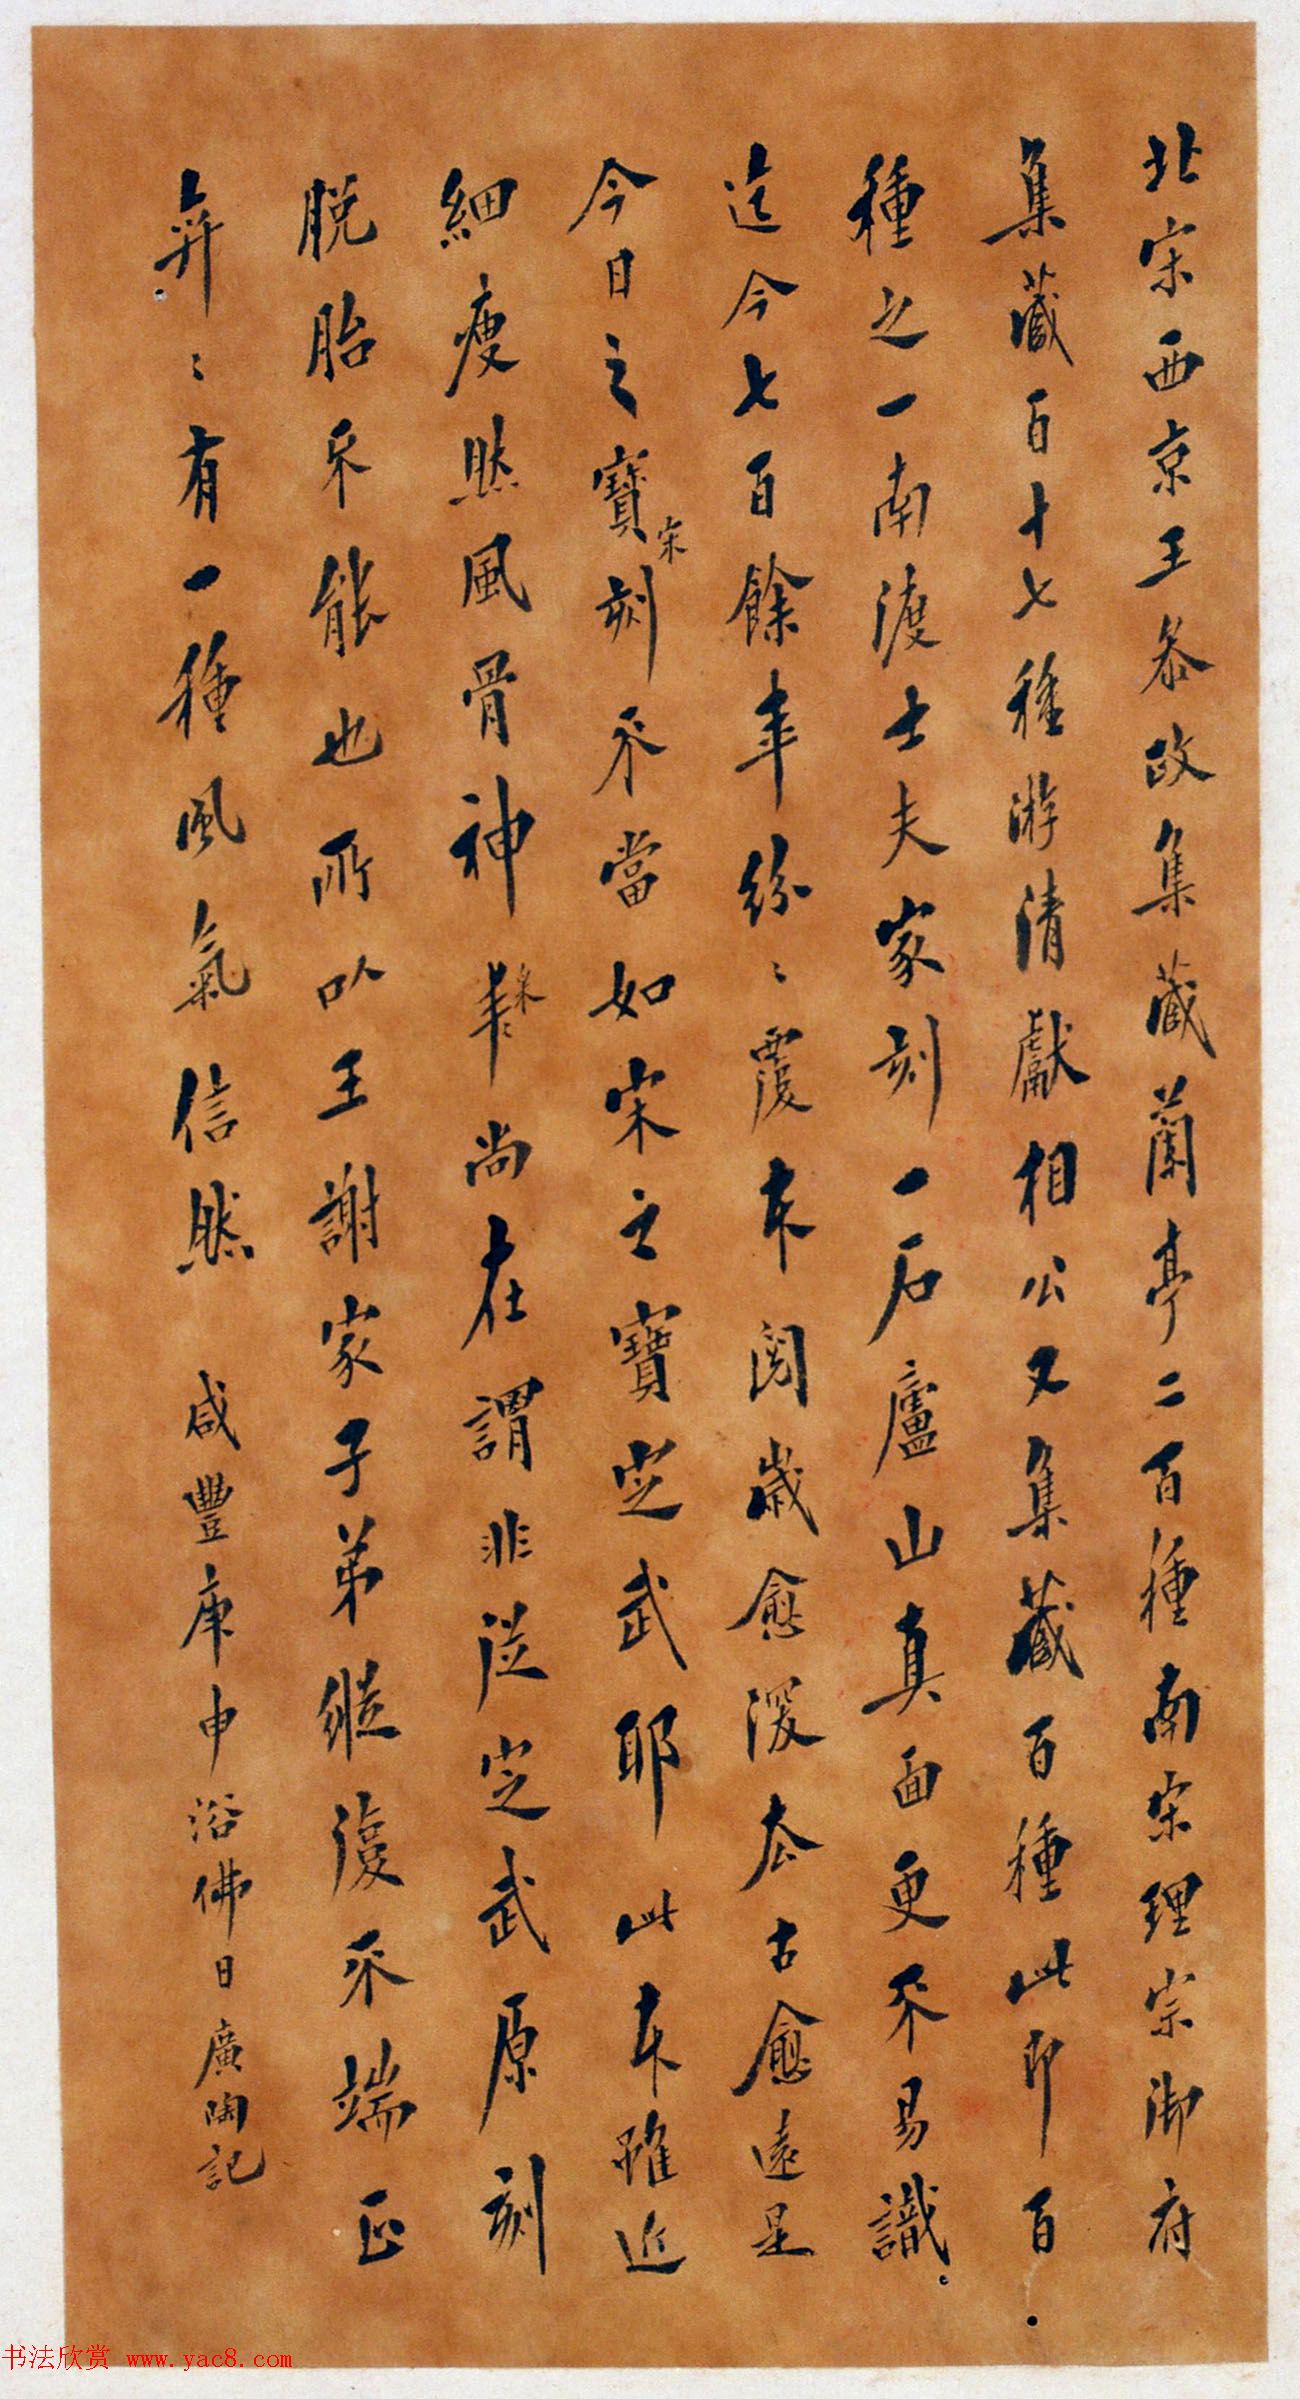 北宋西京王叅政集藏蘭亭二百種南宋理宗御府
集藏百十七種游清獻相公又集藏百種此即百
種之一南渡士夫家刻一石廬山真面更不易識
迄今七百餘年紛〻覆本閱歲愈深去古愈遠是
今日之寶宋刻不當如宋之寶定武耶此本雖近
細瘦然風骨神尚在謂非從定武原刻
脱胎不能也所以王謝家子弟縱復不端正
奕〻有一種風氣信然 咸豐庚申浴佛日廣陶記
书法欣赏 www.yac8.com